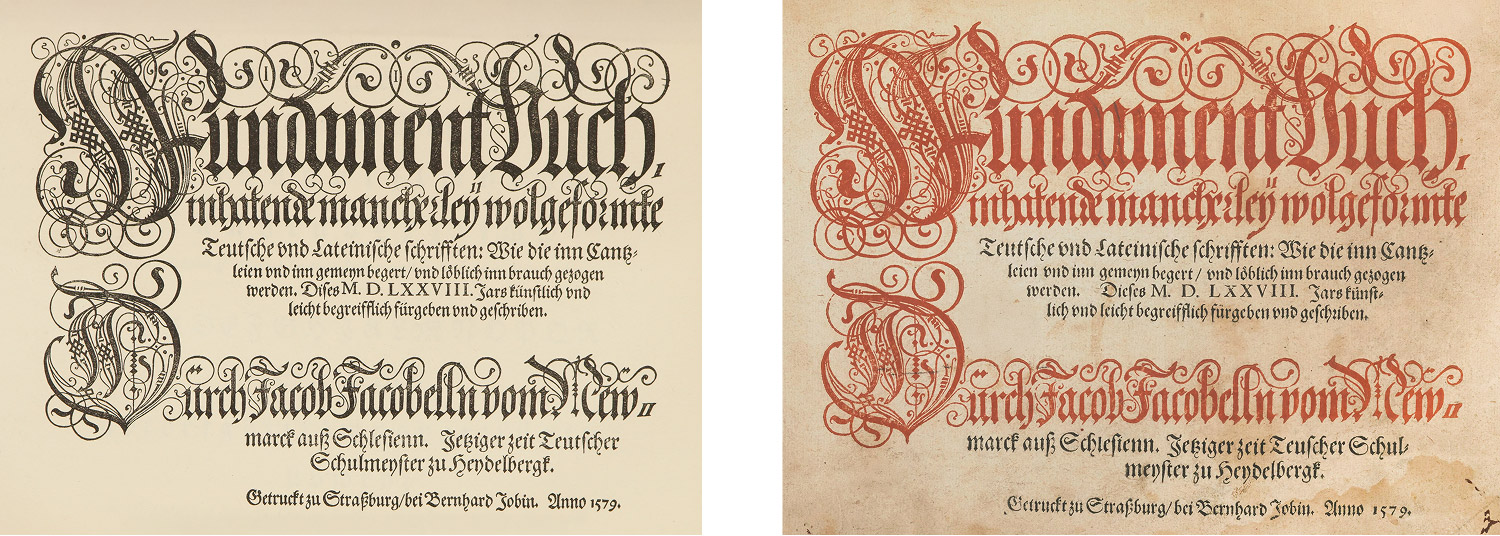 Fundament Buch,
inhatende mancherley wolgeformte
Teutsche vnd Lateinische schrifften: Wie die inn Cantz-
leien vnd inn gemeyn begert/ vnd löblich inn brauch gezogen
werden. Dises M. D. LXXVIII. Jars künstlich vnd
leicht begreifflich fürgeben vnd geschriben.
Durch Jacob Jacobelln vom New=
marck auß Schlesienn. Jetziger zeit Teutscher
Schulmeyster zu Heydelbergk.
Getruckt zu Straßburg/bei Bernhard Jobin. Anno 1579.
Fundament Buch,
inhatende mancherley wolgeformte
Teutsche vnd Lateinische schrifften: Wie die inn Cantz-
leien vnd inn gemeyn begert/ vnd löblich inn brauch gezogen
werden. Dieses M. D. LXXVIII. Jars künst-
lich vnd leicht begreifflich fürgeben vnd geschriben.
Durch Jacob Jacobelln vom New=
marck auß Schlesienn. Jetziger zeit Teuscher Schul-
meyster zu Heydelbergk.
Getruckt zu Straßburg/bei Bernhard Jobin. Anno 1579.